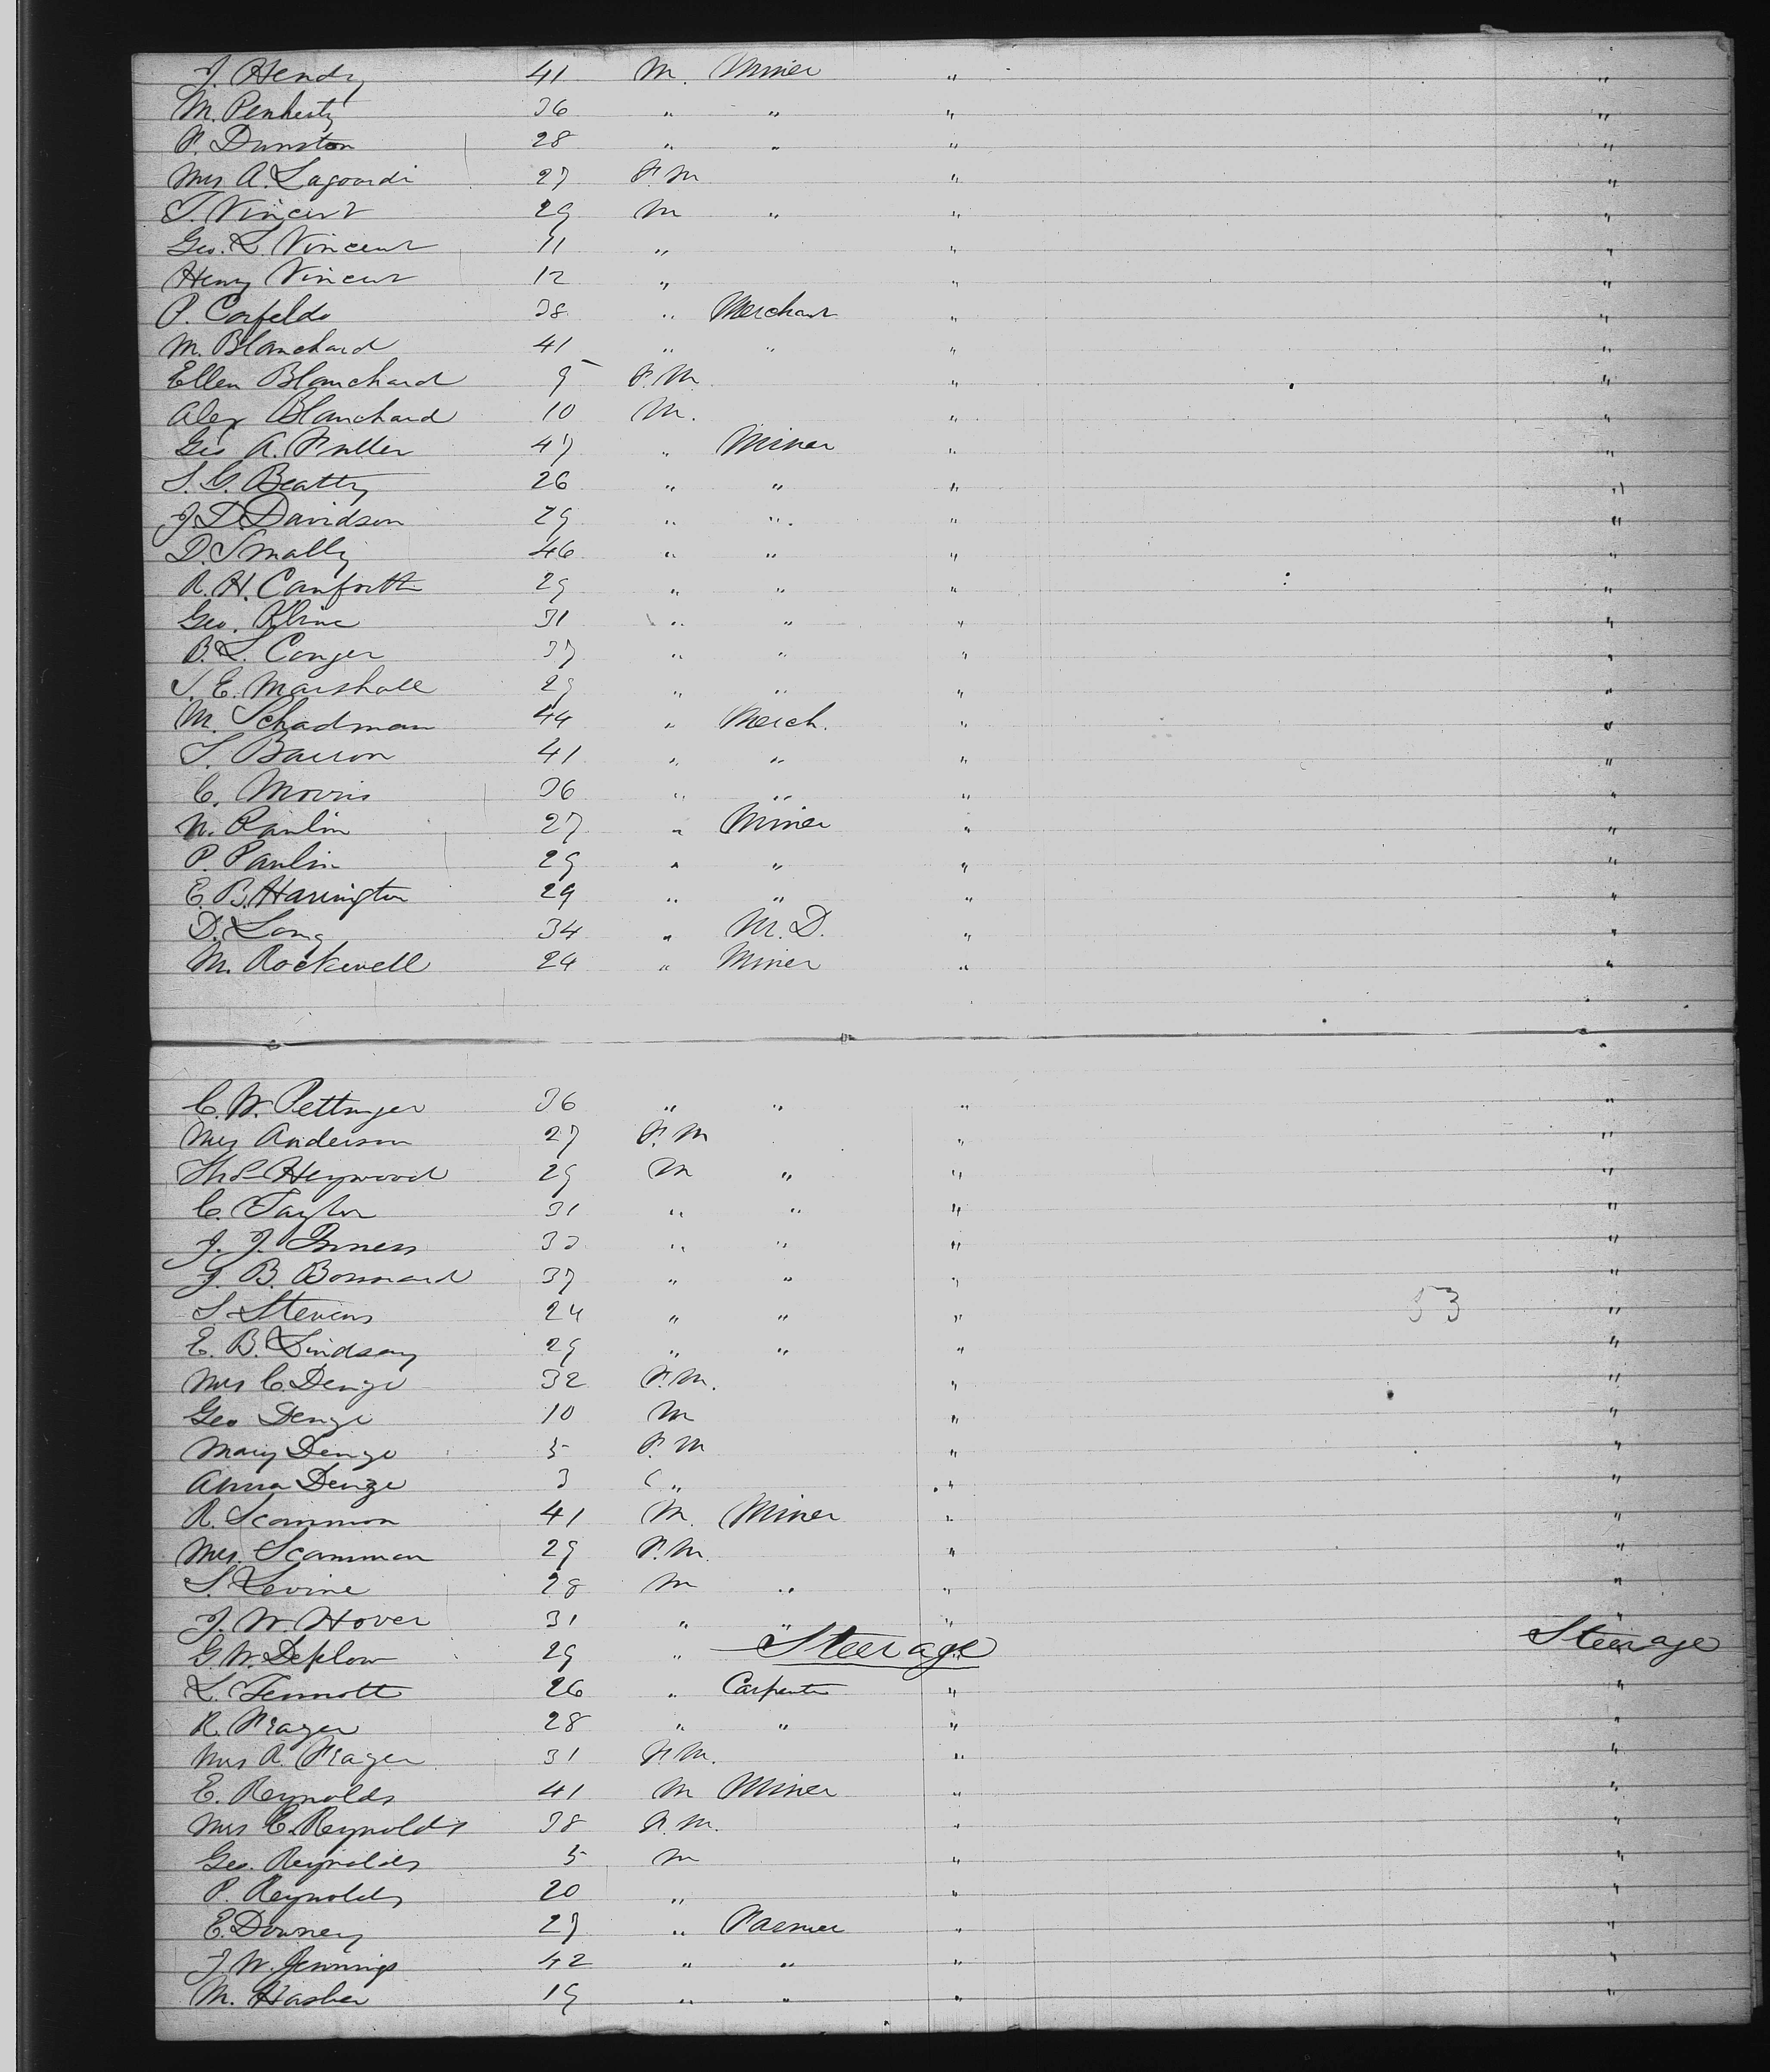 J. Hendy 41 M. Miner " "
M. Penherty 36 " " " "
P. Dunston 28 " " " "
Mrs A. Lagoardi 27 F.M " "
T. Vincent 29 M " " "
Geo. L. Vincent 11 " " "
Henry Vincent 12 " " "
P. Confeldo 38 " Merchant " "
M. Blanchard 41 " " " "
Ellen Blanchard 9 F.M " "
Alex Blanchard 10 M. " "
Geo A. Fuller 47 " Miner " "
S. G. Beatty 26 " " " "
J. D. Davidson 29 " " " "
D. Smally 46 " " " "
R. H. Canforth 29 " " " "
Geo. Kline 31 " " " "
B. L. Conger 37 " " " "
S. E. Marshall 29 " " " "
M. Schadman 44 " Merch. " "
S. Barron 41 " " " "
C. Morris 36 " " " "
N. Paulin 27 " Miner " "
P. Paulin 29 " " " "
E. B. Harrington 29 " " " "
D. Long 34 " M.D. " "
M. Rockwell 24 " Miner " "
C. W. Pettinger 36 " " " "
Mrs Anderson 27 F.M " "
Thos Heywood 29 M " " "
C. Taylor 31 " " " "
J. J. Inness 33 " " " "
J. B. Bonnard 37 " " " "
S. Stevens 24 " " " 53 "
E. B. Lindsay 29 " " " "
Mrs C. Denge 32 F.M. " "
Geo Denge 10 M " "
Mary Denge 5 F.M " "
Anna Denge 3 " " "
R. Scammon 41 M. Miner " "
Mrs. Scamman 29 F.M. " "
S. Levine 28 M " " "
J. W. Hover 31 " " " "
G. W. Deflow 29 " Steerage " Steerage
L. Temmott 26 " Carpenter " "
R. Frager 28 " " " "
Mrs R. Frager 31 F.M. " "
E. Reynolds 41 M Miner " "
Mrs E. Reynolds 38 F.M. " "
Geo. Reynolds 5 M " "
P. Reynolds 20 " " "
E. Downey 27 " Farmer " "
J. W. Jennings 42 " " " "
M. Hasher 19 " " " "